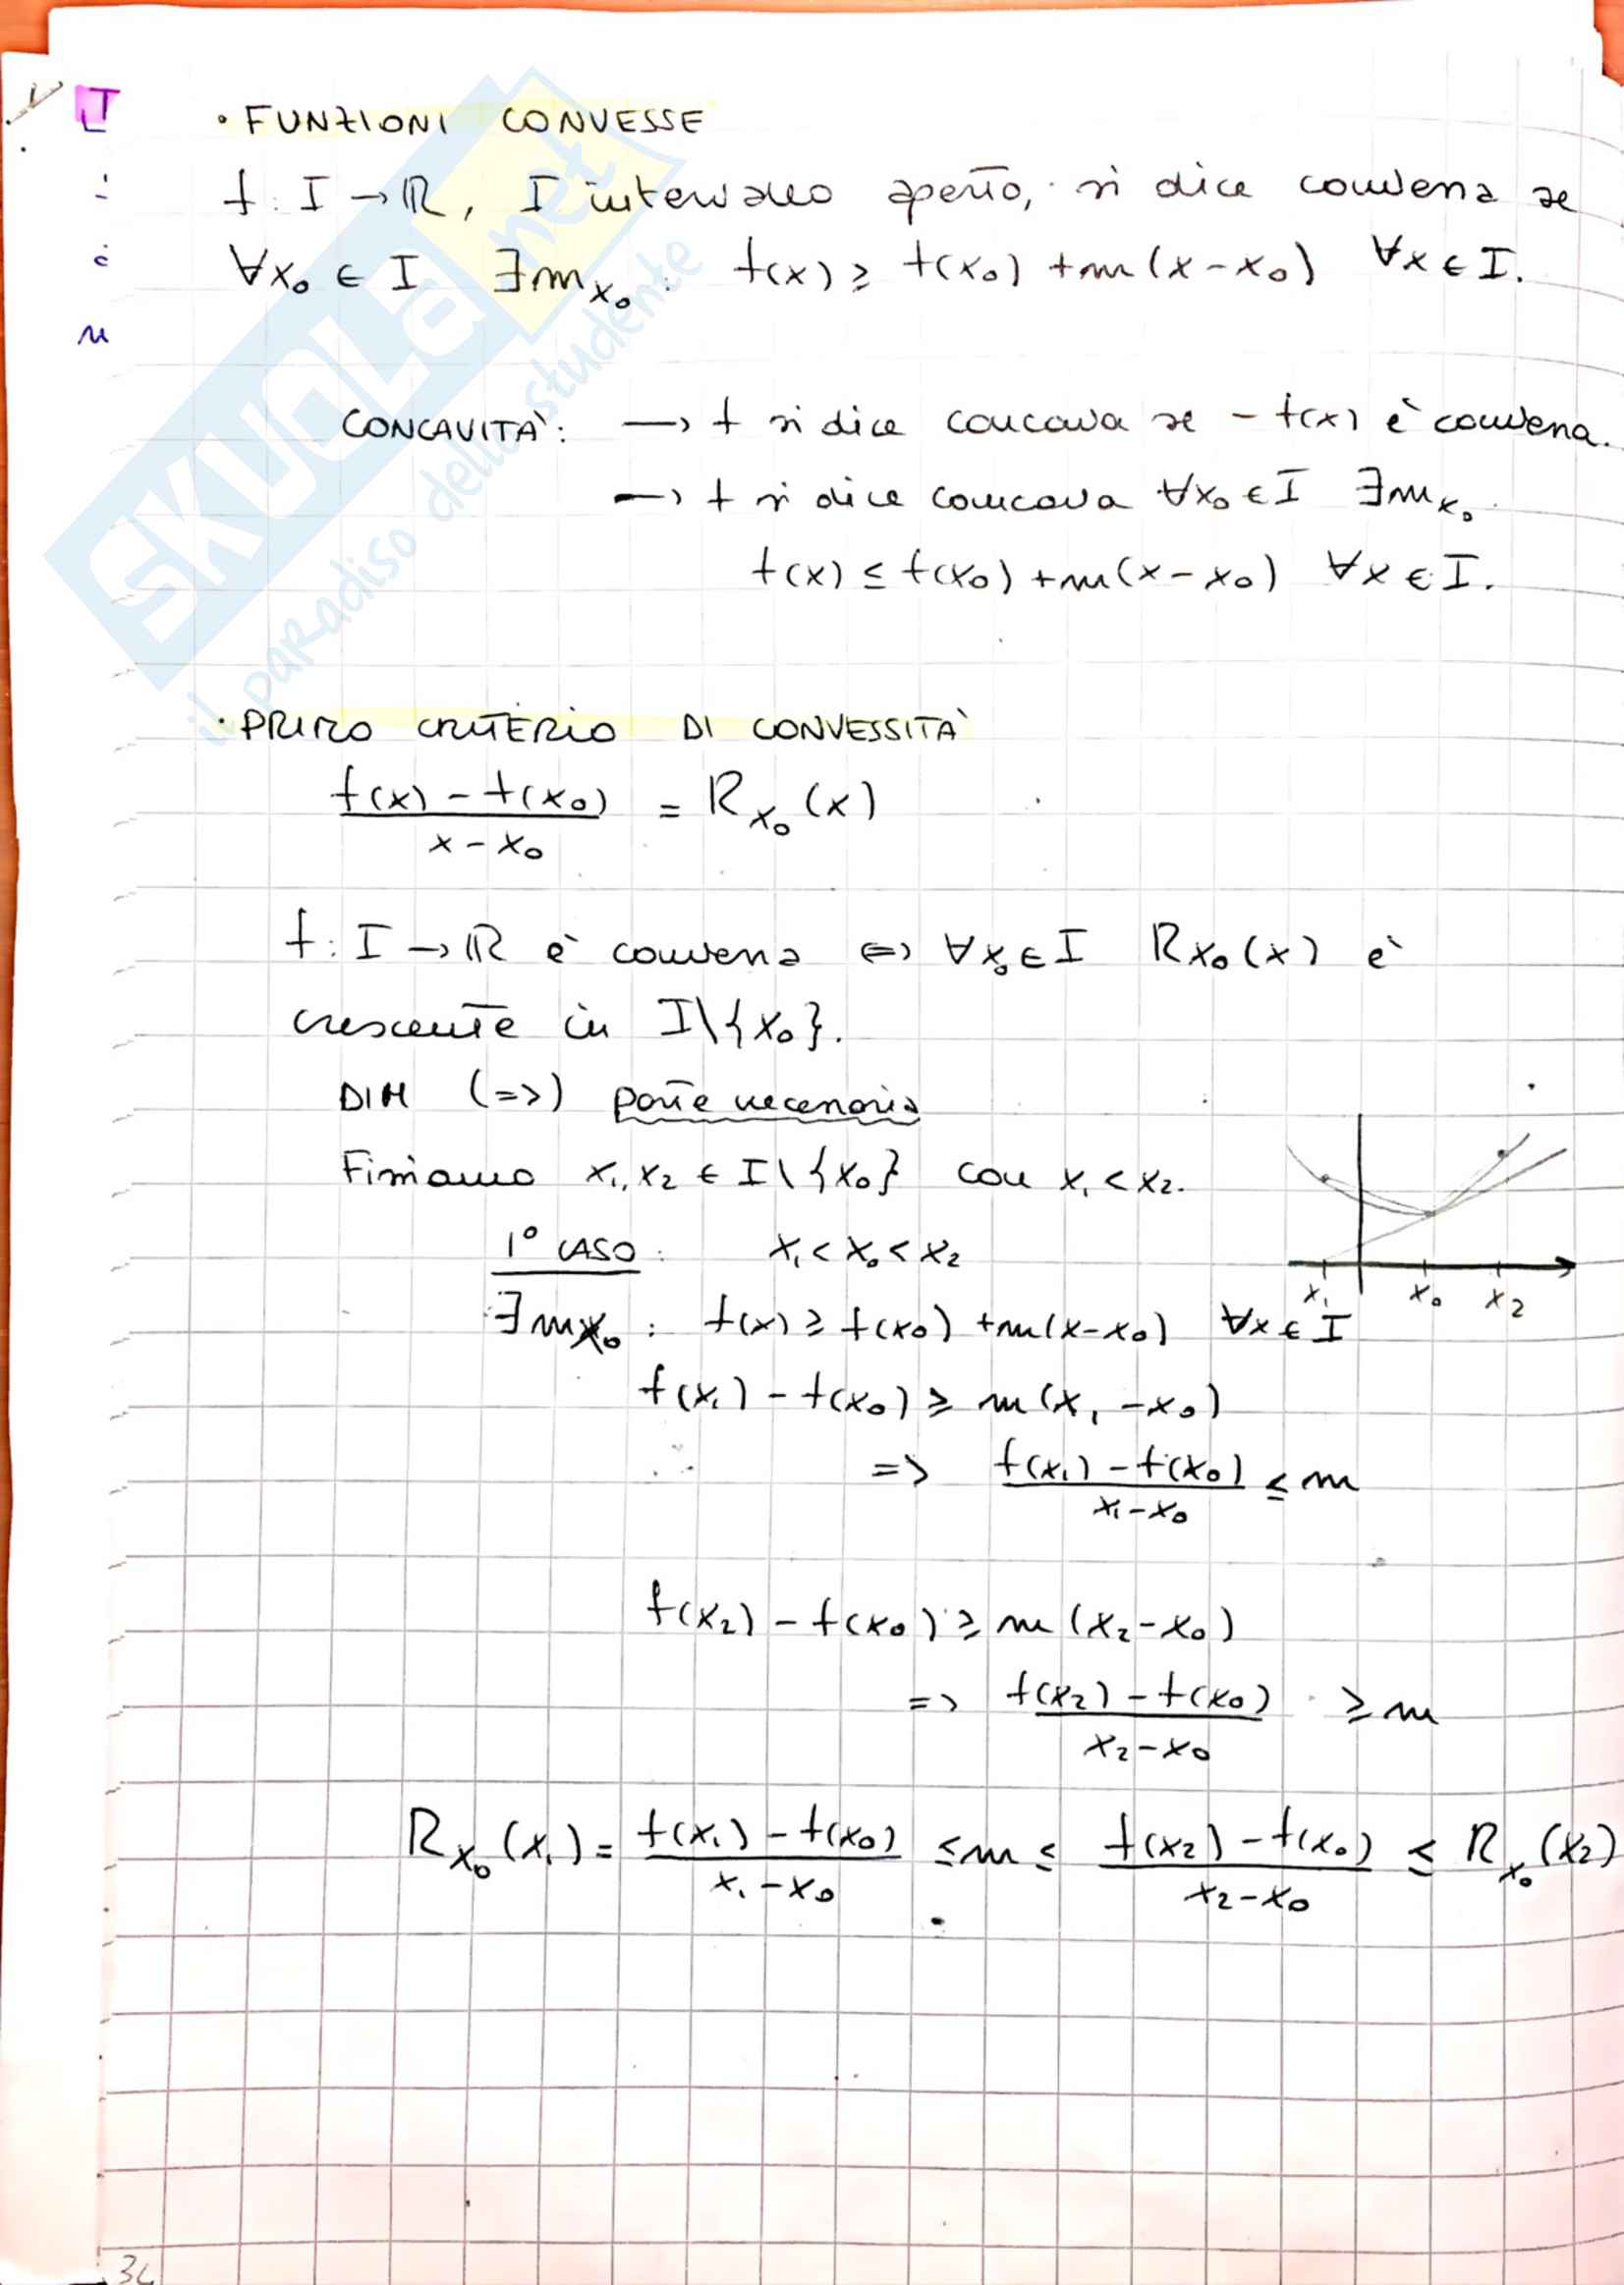 • FUNZIONI CONVESSE
f: I → ℝ, I intervallo aperto, si dice convessa se
∀x₀ ∈ I ∃m_x₀ : f(x) ≥ f(x₀) + m(x - x₀) ∀x ∈ I.
CONCAVITÀ: → f si dice concava se - f(x) è convessa.
→ f si dice concava ∀x₀ ∈ I ∃m_x₀.
f(x) ≤ f(x₀) + m(x - x₀) ∀x ∈ I.
• PRIMO CRITERIO DI CONVESSITÀ
(f(x) - f(x₀))/(x - x₀) = R_x₀(x)
f: I → ℝ è convessa ⇔ ∀x₀ ∈ I R_x₀(x) è
crescente in I\{x₀}.
DIM (=>) parte necessaria
Fissiamo x₁, x₂ ∈ I\{x₀} con x₁ < x₂.
1° CASO: x₁ < x₀ < x₂
x₁ x₀ x₂
∃m_x₀ : f(x) ≥ f(x₀) + m(x - x₀) ∀x ∈ I
f(x₁) - f(x₀) ≥ m(x₁ - x₀)
=> (f(x₁) - f(x₀))/(x₁ - x₀) ≤ m
f(x₂) - f(x₀) ≥ m(x₂ - x₀)
=> (f(x₂) - f(x₀))/(x₂ - x₀) ≥ m
R_x₀(x₁) = (f(x₁) - f(x₀))/(x₁ - x₀) ≤ m ≤ (f(x₂) - f(x₀))/(x₂ - x₀) ≤ R_x₀(x₂)
SKUOLA.net
il paradiso dello studente